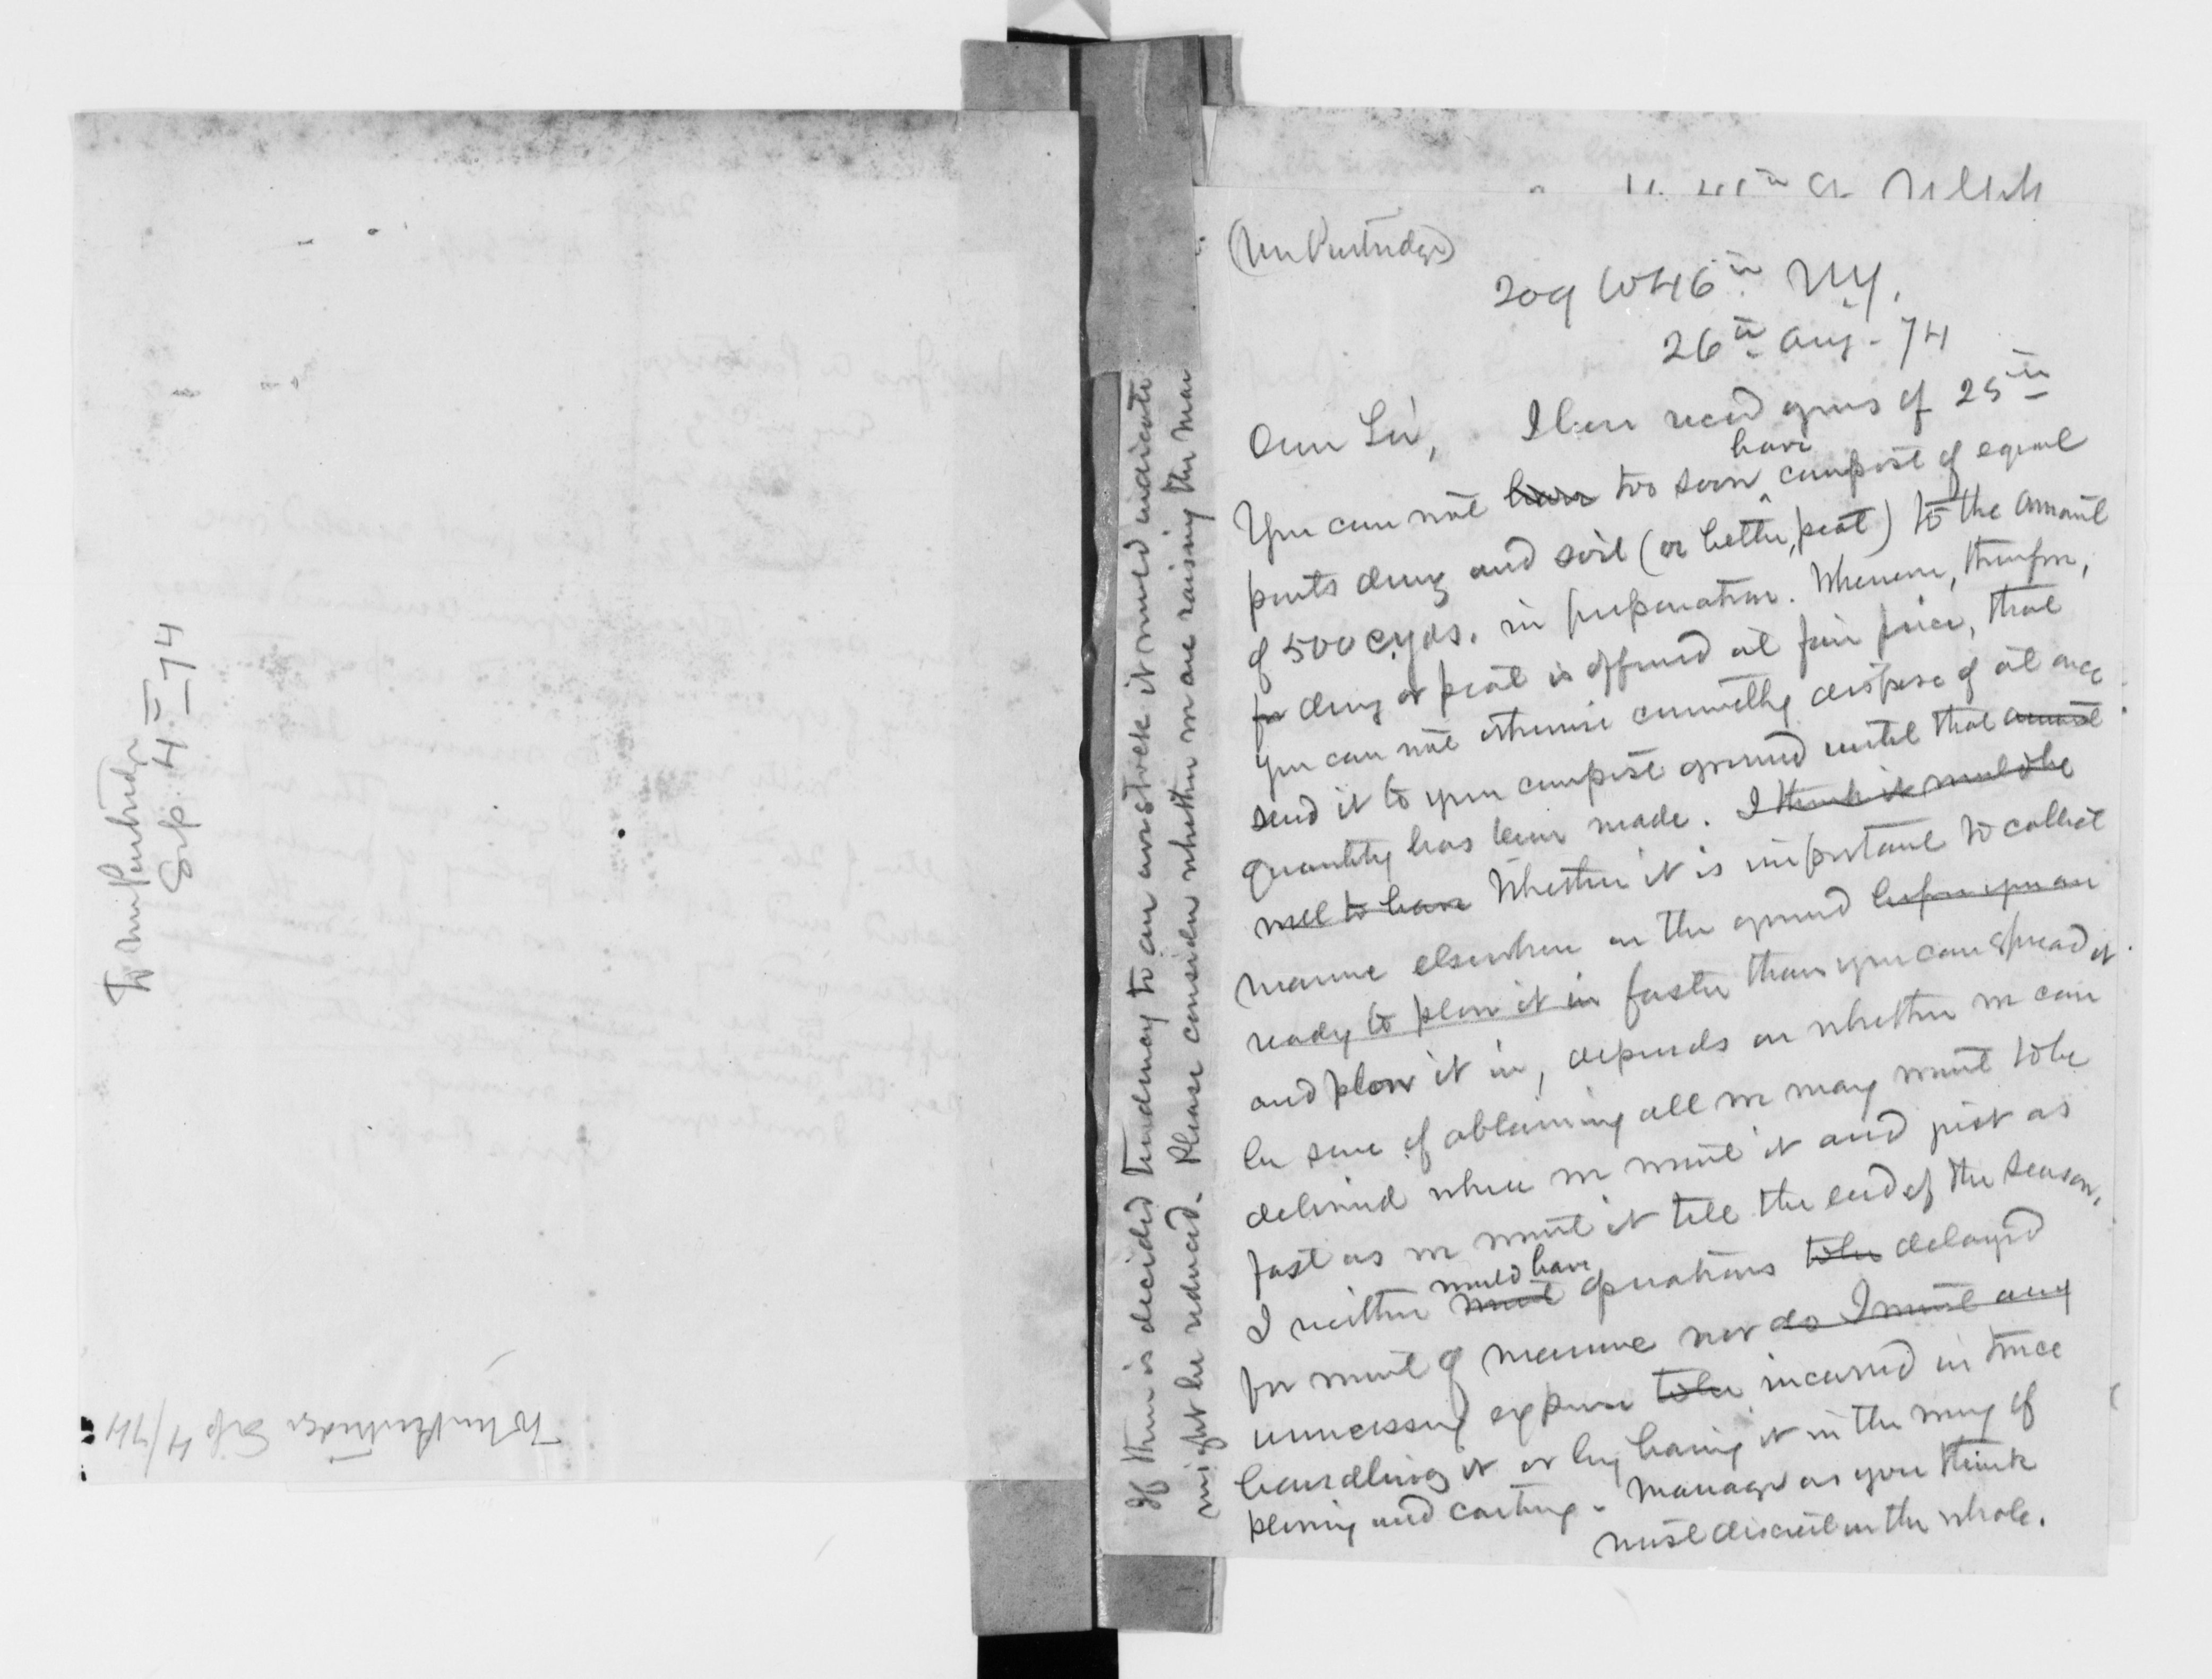 To Mr Partridge
Sep. 4th—74
To Mr Partridge Sep 4/74
(Mr Partridge)
209 W 46th N.Y.
26th Aug. 74
Dear Sir, I have recd yours of 25th
You can not have too soon have compost of equal
parts dung and soil (or better, peat) to the amount
of 500 c.yds. in preparation. Whenever, therefore,
for dung or peat is offered at fair price, that
you can not otherwise dispose of at once
send it to your compost ground until that amount
quantity has been made. I think it would be
well to have Whether it is important to collect
manure elsewhere on the ground before you are
ready to plow it in faster than you can spread it
and plow it in, depends on whether we can
be sure of obtaining all we may want to be
delivered where we want it and just as
fast as we want it till the end of the season.
I neither want would have operations to be delayed
for want of manure nor do I want any
unnecessary expense to be incurred in twice
handling it or by having it in the way of
plowing and carting. Manage as you think
most discreet on the whole.
If there is decided tendency to an overstock it would indicate
might be reduced. Please consider whether we are raising the mar